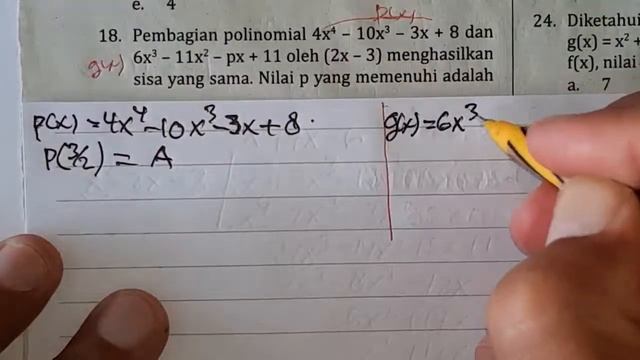 e. 4
p(x)
18. Pembagian polinomial 4x⁴ – 10x³ – 3x + 8 dan
g(x) 6x³ – 11x² – px + 11 oleh (2x – 3) menghasilkan
sisa yang sama. Nilai p yang memenuhi adalah
24. Diketahui
g(x) = x² +
f(x), nilai
a. 7
p(x) = 4x⁴ - 10x³ - 3x + 8.
p(3/2) = A
g(x) = 6x³